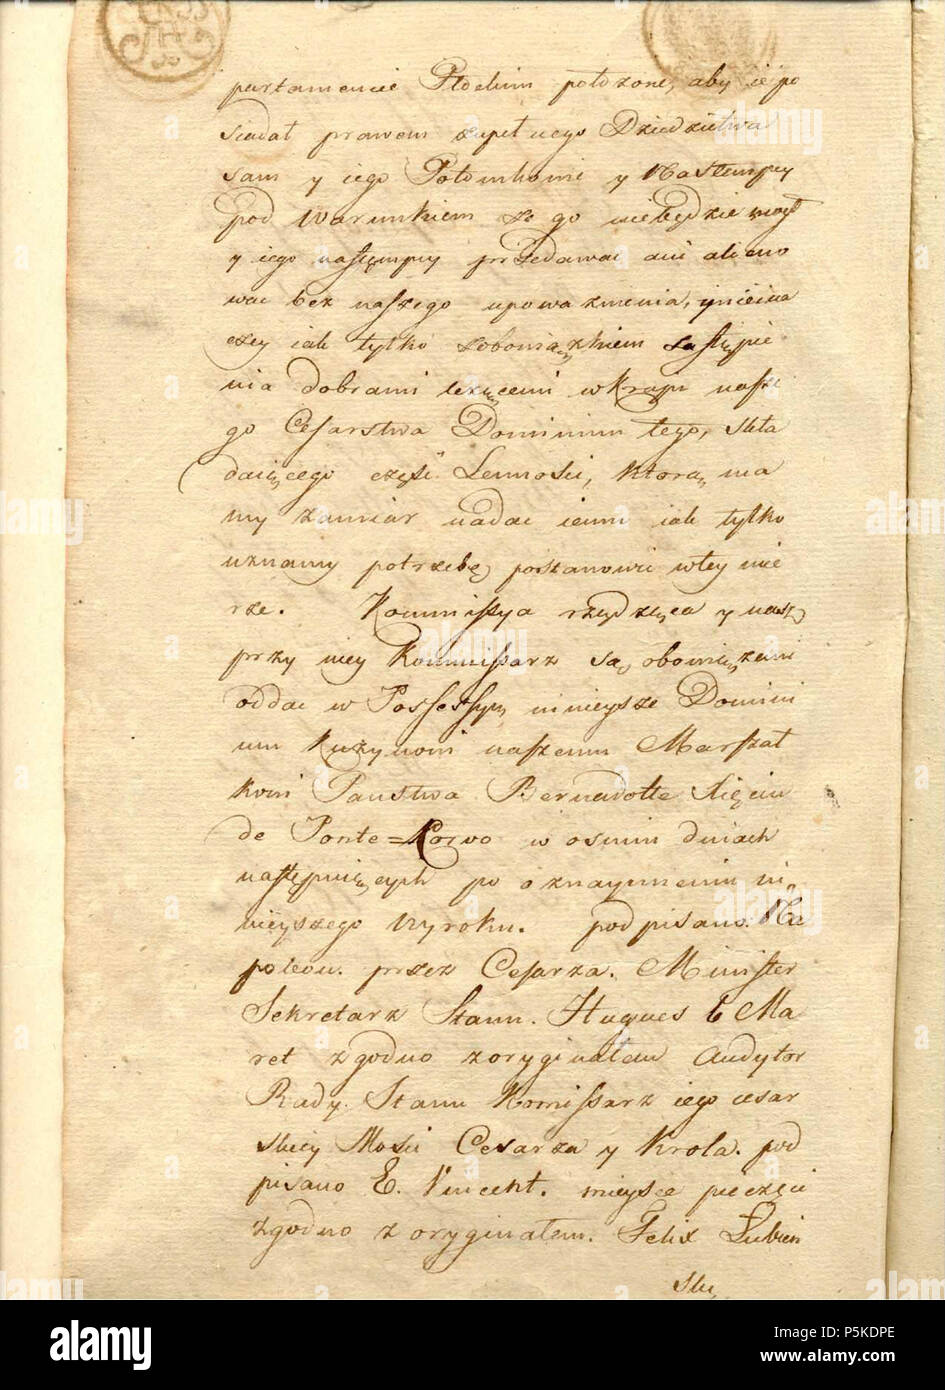 partamencie Płockim położone, aby ie po
siadał prawem zupełnego Dziedzictwa
sam y iego Potomkowie y Następcy
pod Warunkiem że go niebędzie mógł
y iego następcy przedawać ani alieno
wać bez naszego upoważnienia, ynieina
czey iak tylko zobowiązkiem zastąpie
nia dobrami leżącemi w Kraju nasze
go Cesarstwa Dominium tego, skła
daiącego część Lenności, którą ma
my zamiar nadać iemu iak tylko
uznamy potrzebę postanowić wtey mie
rze. Kommissya rządząca y nasz
przy niey Kommissarz są obowiązani
oddać w Possessyą ninieysze Domini
um Kuzynowi naszemu Marszał
kowi Państwa Bernadotte Xięciu
de Ponte=Korvo w osmiu dniach
następuiących po oznaymieniu ni„
nieyszego wyroku. podpisano: Na
poleon. przez Cesarza. Minister
Sekretarz Stanu. Hugues B Ma
ret zgodno zoryginałem Audytor
Rady Stanu Komissarz iego cesar
skiey Mości Cesarza y Krola. pod
pisano E. Vincent. mieysce pieczęci
zgodno z oryginałem. Felix Łubień
ski,
alamy
Image ID: P5KDPE
www.alamy.com